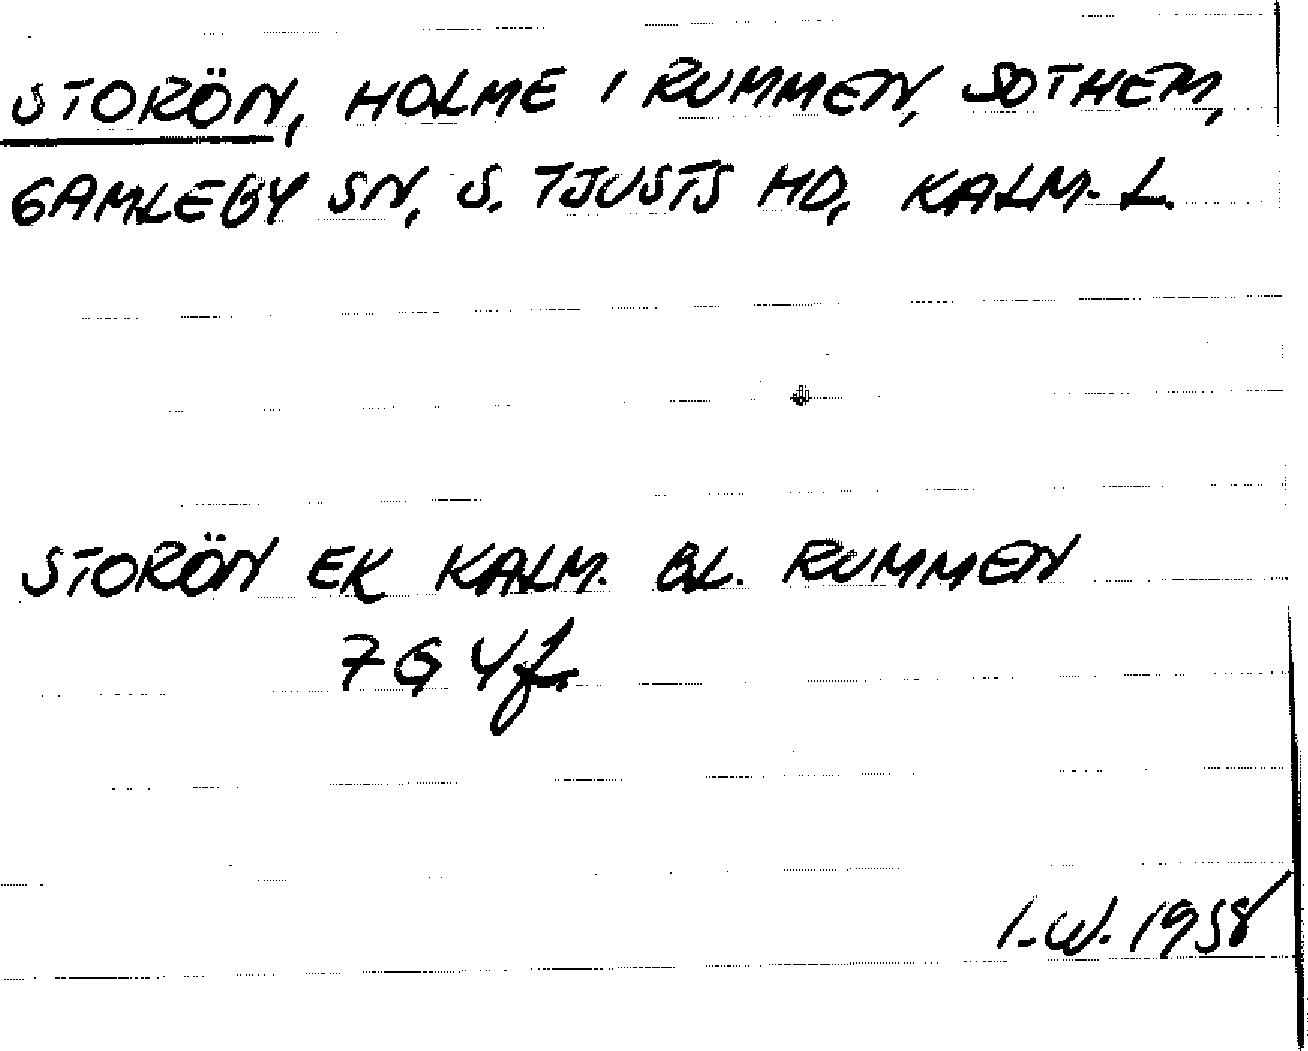 STORÖN, HOLME I RUMMEN, SOTHEM,
GAMLEBY SN, S. TJUSTS HD, KALM. L.
STORÖN EK KALM. BL. RUMMEN
7G 4f.
I.W. 1958